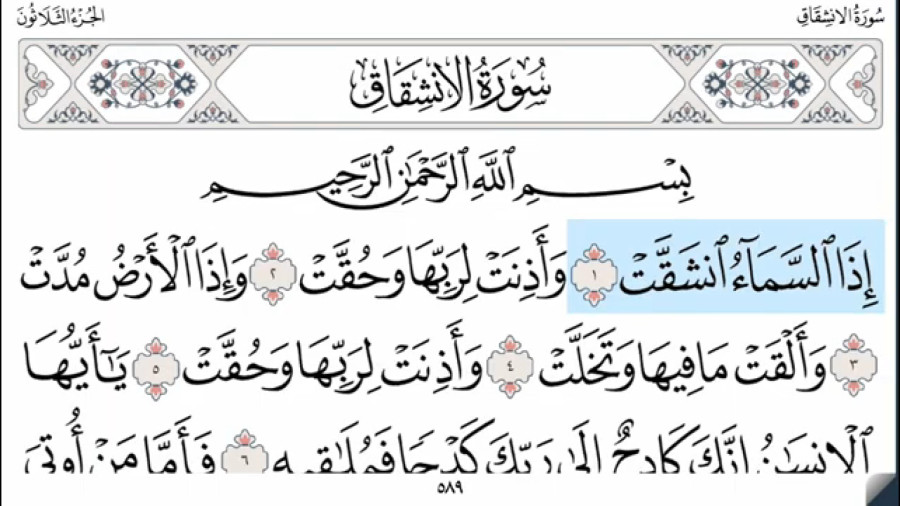 سُورَةُ الِانشِقَاقِ
الجُزْءُ الثَّلَاثُونَ
سُورَةُ الِانشِقَاقِ
بِسْمِ ٱللَّهِ ٱلرَّحْمَٰنِ ٱلرَّحِيمِ
إِذَا ٱلسَّمَآءُ ٱنشَقَّتْ ١ وَأَذِنَتْ لِرَبِّهَا وَحُقَّتْ ٢ وَإِذَا ٱلْأَرْضُ مُدَّتْ
٣ وَأَلْقَتْ مَا فِيهَا وَتَخَلَّتْ ٤ وَأَذِنَتْ لِرَبِّهَا وَحُقَّتْ ٥ يَٰٓأَيُّهَا
ٱلْإِنسَٰنُ إِنَّكَ كَادِحٌ إِلَىٰ رَبِّكَ كَدْحًا فَمُلَٰقِيهِ ٦ فَأَمَّا مَنْ أُوتِيَ
٥٨٩